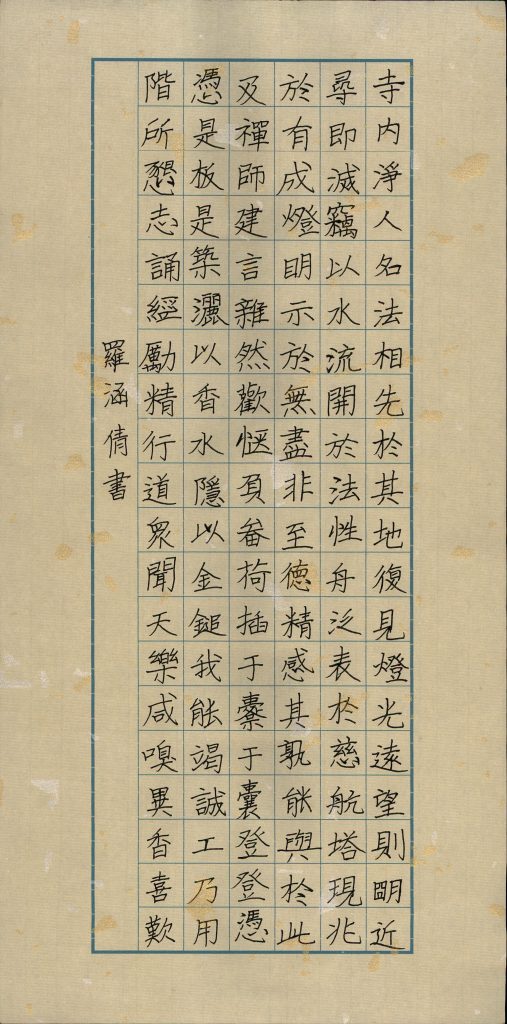 寺内淨人名法相先於其地復見燈光遠望則眀近
尋即滅竊以水流開於法性舟泛表於慈航塔現兆
於有成燈眀示於無盡非至德精感其孰能與於此
及禪師建言雜然歡愜負畚荷插于橐于囊登登憑
憑是板是築灑以香水隱以金鎚我能竭誠工乃用
階所懇志誦經勵精行道眾聞天樂咸嗅異香喜歎
羅涵倩書